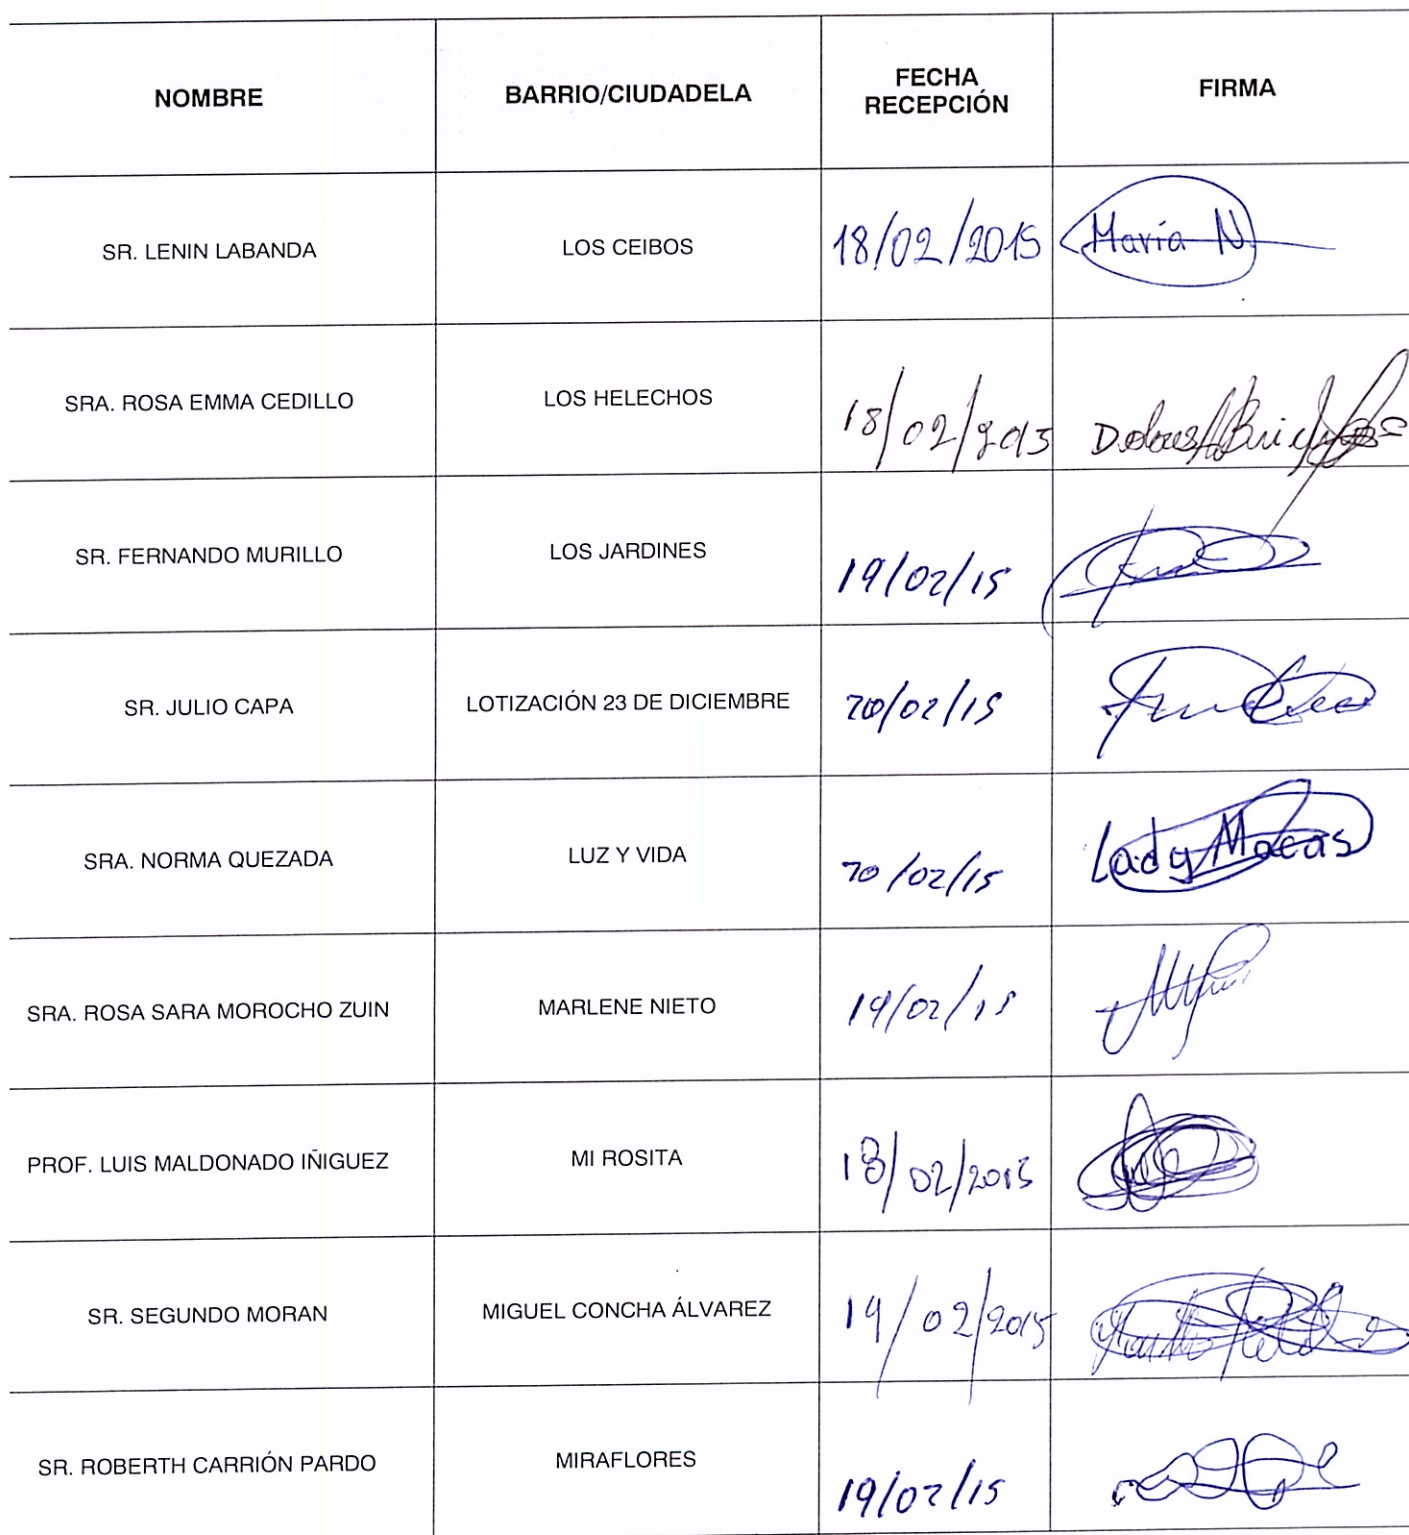 NOMBRE
BARRIO/CIUDADELA
FECHA
RECEPCIÓN
FIRMA
SR. LENIN LABANDA
LOS CEIBOS
18/02/2015
María N.
SRA. ROSA EMMA CEDILLO
LOS HELECHOS
18/02/2015
SR. FERNANDO MURILLO
LOS JARDINES
19/02/15
SR. JULIO CAPA
LOTIZACIÓN 23 DE DICIEMBRE
20/02/15
SRA. NORMA QUEZADA
LUZ Y VIDA
20/02/15
Lady Macas
SRA. ROSA SARA MOROCHO ZUIN
MARLENE NIETO
19/02/15
PROF. LUIS MALDONADO IÑIGUEZ
MI ROSITA
18/02/2015
SR. SEGUNDO MORAN
MIGUEL CONCHA ÁLVAREZ
19/02/2015
SR. ROBERTH CARRIÓN PARDO
MIRAFLORES
19/02/15